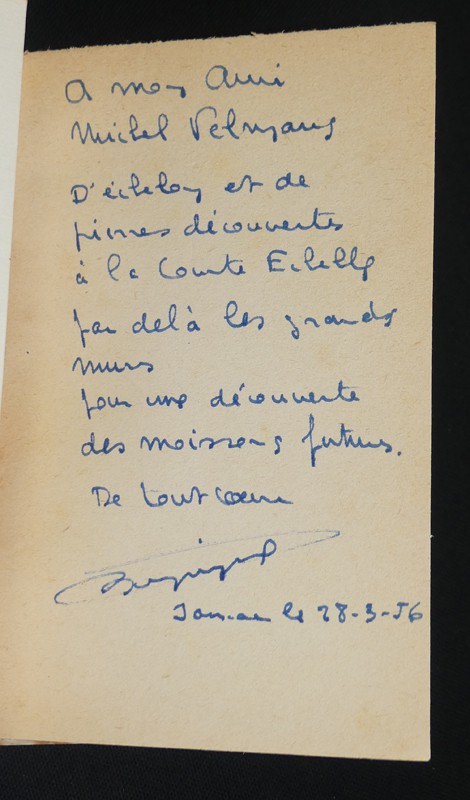 A mon Ami
Michel Velmans
D'échelons et de
pierres découvertes
à la Courte Echelle
par delà les grands
murs
pour une découverte
des moissons futures.
De tout coeur
le 28-3-56